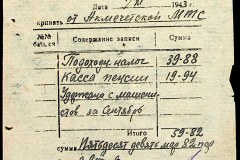 Дата 9/XI 1943 г.
принять от Акмечетской МТС
№№ Содержание записи сумма
Подоходн. налог 39-88
Касса пенсии 19-94
Удержано с машини-
стов за Сентябрь
Итого 59-82
сумма Пятьдесят девять 82